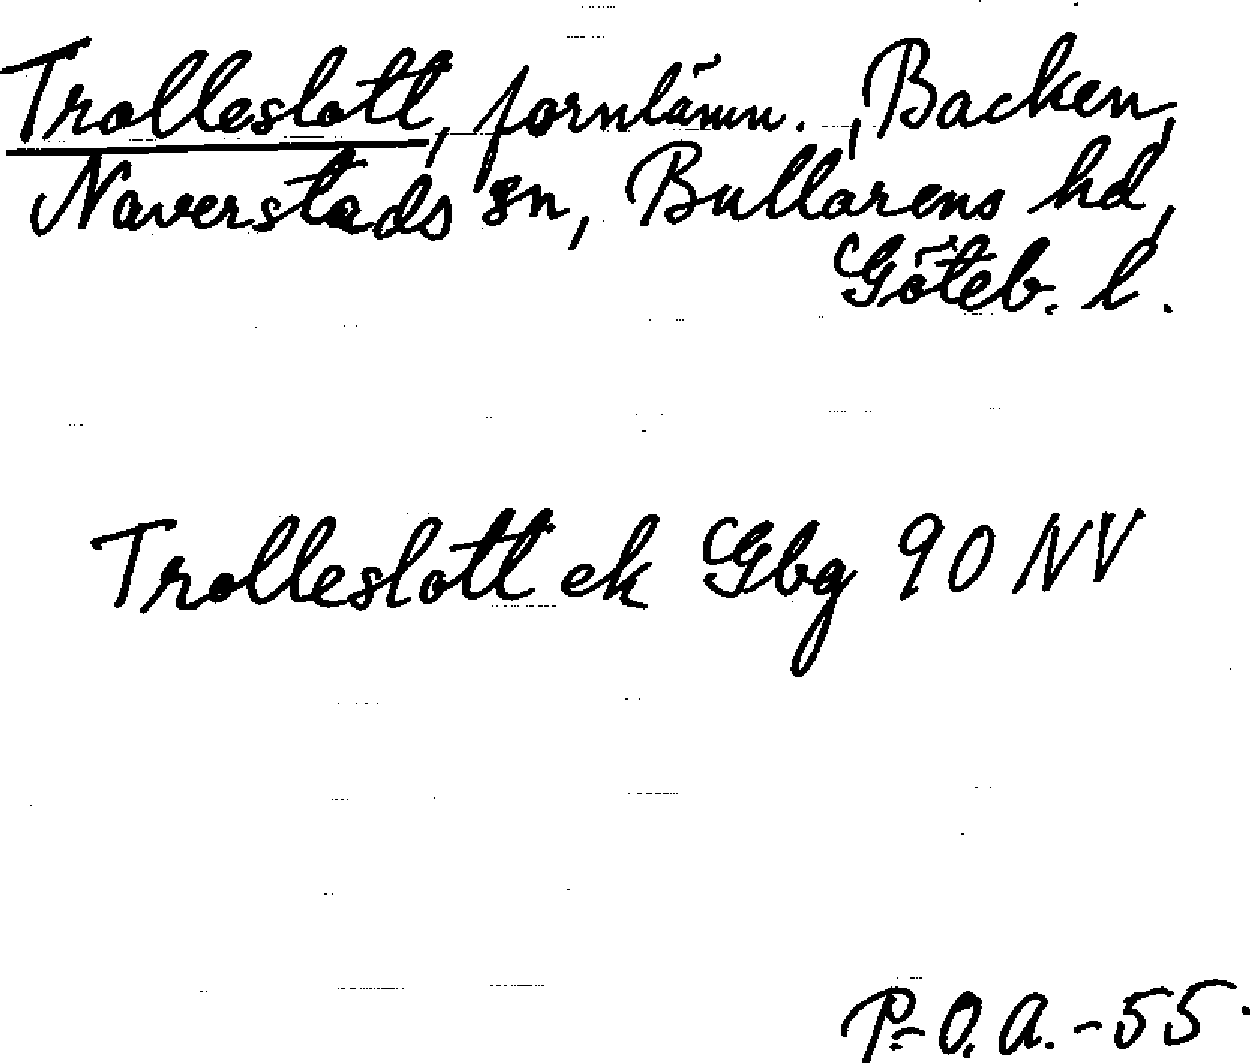 Trolleslott, fornlämn., Backen,
Naverstads sn, Bullarens hd,
Göteb. l.
Trolleslott ek Gbg 90 NV
P.-O. A. -55.